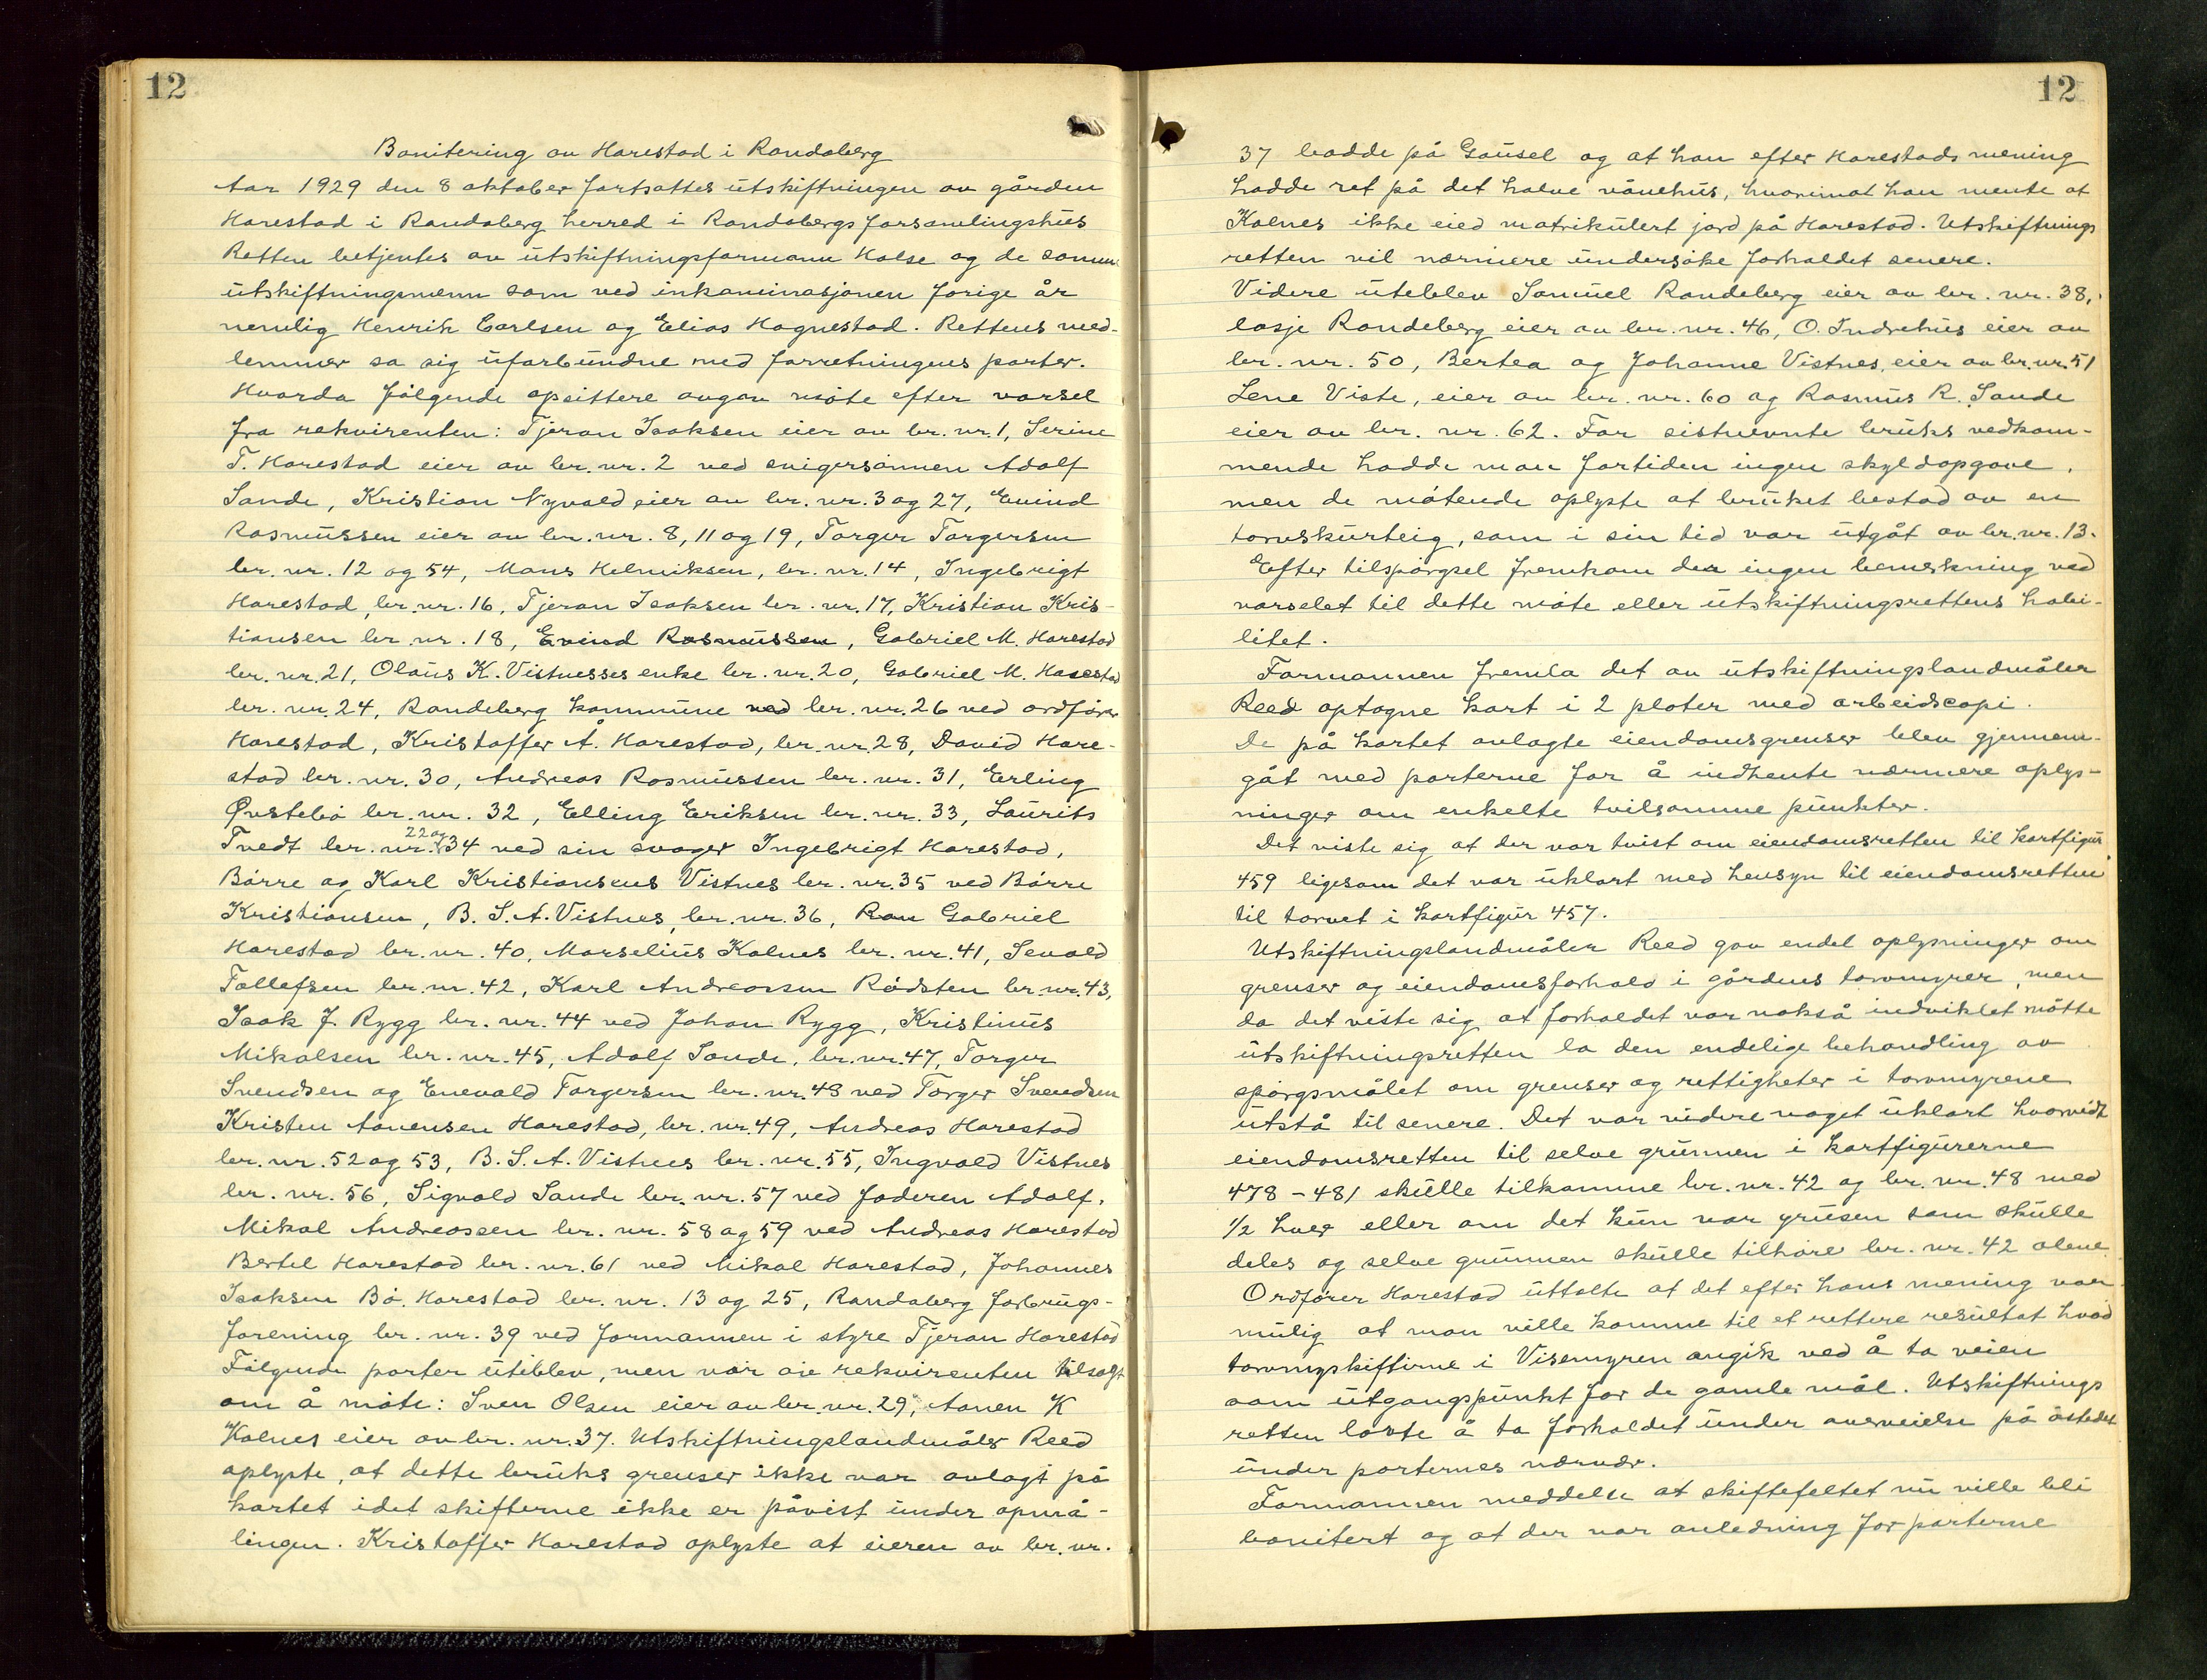 12
Bonitering av Harestad i Randaberg
Aar 1929 den 8 oktober fortsattes utskiftningen av gården
Harestad i Randaberg herred i Randabergs forsamlingshus
Retten betjentes av utskiftningsformann Holse og de samme
utskiftningsmenn som ved inkaminasjonen forige år
nemlig Henrik Carlsen og Elias Hognestad. Rettens med-
lemmer sa sig uforbundne med forretningens parter.
Hvorda følgende opsittere avgav møte efter varsel
fra rekvirenten: Tjeran Isaksen eier av br. nr. 1, Serine
T. Harestad eier av br. nr. 2 ved svigersønnen Adolf
Sande, Kristian Nyvold eier av br. nr. 3 og 27, Evind
Rasmussen eier av br. nr. 8, 11 og 19, Torger Torgersen
br. nr. 12 og 54, Mons Helmiksen, br. nr. 14, Ingebrigt
Harestad br. nr. 16, Tjeran Isaksen br. nr. 17, Kristian Kris-
tiansen br. nr. 18, Evind Rasmussen, Gabriel M. Harestad
br. nr. 21, Olaus K. Vistnesses enke br. nr. 20, Gabriel M. Harestad
br. nr. 24, Randeberg kommune ved br. nr. 26 ved ordfører
Harestad, Kristoffer A. Harestad, br. nr. 28, David Hare-
stad br. nr. 30, Andreas Rasmussen br. nr. 31, Erling
Øvstebø br. nr. 32, Elling Eriksen br. nr. 33, Laurits
Tvedt br. nr. 22 og 34 ved sin svoger Ingebrigt Harestad,
Børre og Karl Kristiansens Vistnes br. nr. 35 ved Børre
Kristiansen, B. S. A. Vistnes br. nr. 36, Ran Gabriel
Harestad br. nr. 40, Marselius Kalnes br. nr. 41, Sevald
Tollefsen br. nr. 42, Karl Andreassen Rødsten br. nr. 43,
Isak J. Rygg br. nr. 44 ved Johan Rygg, Kristinus
Mikalsen br. nr. 45, Adolf Sande, br. nr. 47, Torger
Svendsen og Enevald Torgersen br. nr. 48 ved Torger Svendsen
Kristen Aanensen Harestad, br. nr. 49, Andreas Harestad
br. nr. 52 og 53, B. S. A. Vistnes br. nr. 55, Ingvald Vistnes
br. nr. 56, Sigvald Sande br. nr. 57 ved faderen Adolf.
Mikal Andreassen br. nr. 58 og 59 ved Andreas Harestad
Bertel Harestad br. nr. 61 ved Mikal Harestad, Johannes
Isaksen Bø. Harestad br. nr. 13 og 25, Randaberg forbrugs-
forening br. nr. 39 ved formannen i styre Tjeran Harestad
Følgende parter uteblev, men var av rekvirenten tilsagt
om å møte: Sven Olsen eier av br. nr. 29, Aanen K
Kalnes eier av br. nr. 37. Utskiftningslandmåler Reed
oplyste, at dette bruks grenser ikke var avlagt på
kartet idet skifterne ikke er påvist under opmå-
lingen. Kristoffer Harestad oplyste at eieren av br. nr.
12
37 badde på Gausel og at han efter Harestads mening
hadde ret på det halve vånehus, hvorimot han mente at
Kalnes ikke eied matrikulert jord på Harestad. Utskiftnings
retten vil nærmere undersøke forholdet senere.
Videre uteblev Samuel Randeberg eier av br. nr. 38,
losje Randeberg eier av br. nr. 46, O. Indrehus eier av
br. nr. 50, Bertea og Johanne Vistnes, eier av br. nr. 51
Lene Viste, eier av br. nr. 60 og Rasmus R. Sande
eier av br. nr. 62. For sistnevnte bruks vedkom-
mende hadde man fortiden ingen skyldopgave,
men de møtende oplyste at bruket bestod av en
torvskurteig, som i sin tid var utgåt av br. nr. 13.
Efter tilspørgsel fremkom der ingen bemerkning ved
varselet til dette møte eller utskiftningsrettens habi-
litet.
Formannen fremla det av utskiftningslandmåler
Reed optagne kart i 2 plater med arbeidscopi.
De på kartet avlagte eiendomsgrenser blev gjennem-
gåt med parterne for å indhente nærmere oplys-
ninger om enkelte tvilsomme punkter.
Det viste sig at der var tvist om eiendomsretten til kartfigur
459 ligesom det var uklart med hensyn til eiendomsretten
til torvet i kartfigur 457.
Utskiftningslandmåler Reed gav endel oplysninger om
grenser og eiendomsforhold i gårdens torvmyrer, men
da det viste sig at forholdet var nokså indviklet måtte
utskiftningsretten la den endelige behandling av
spørgsmålet om grenser og rettigheter i torvmyrene
utstå til senere. Det var videre noget uklart hvorvidt
eiendomsretten til selve grunnen i kartfigurerne
478 - 481 skulle tilkomme br. nr. 42 og br. nr. 48 med
1/2 hver eller om det kun var grusen som skulle
deles og selve grunnen skulle tilhøre br. nr. 42 alene.
Ordfører Harestad uttalte at det efter hans mening var
mulig at man ville komme til et rettere resultat hvad
torvmyskifterne i Visemyren angik ved å ta veien
som utgangspunkt for de gamle mål. Utskiftnings
retten lovte å ta forholdet under overveielse på åstedet
under parternes nærvær.
Formannen meddelte at skiftefeltet nu ville bli
bonitert og at der var anledning for parterne